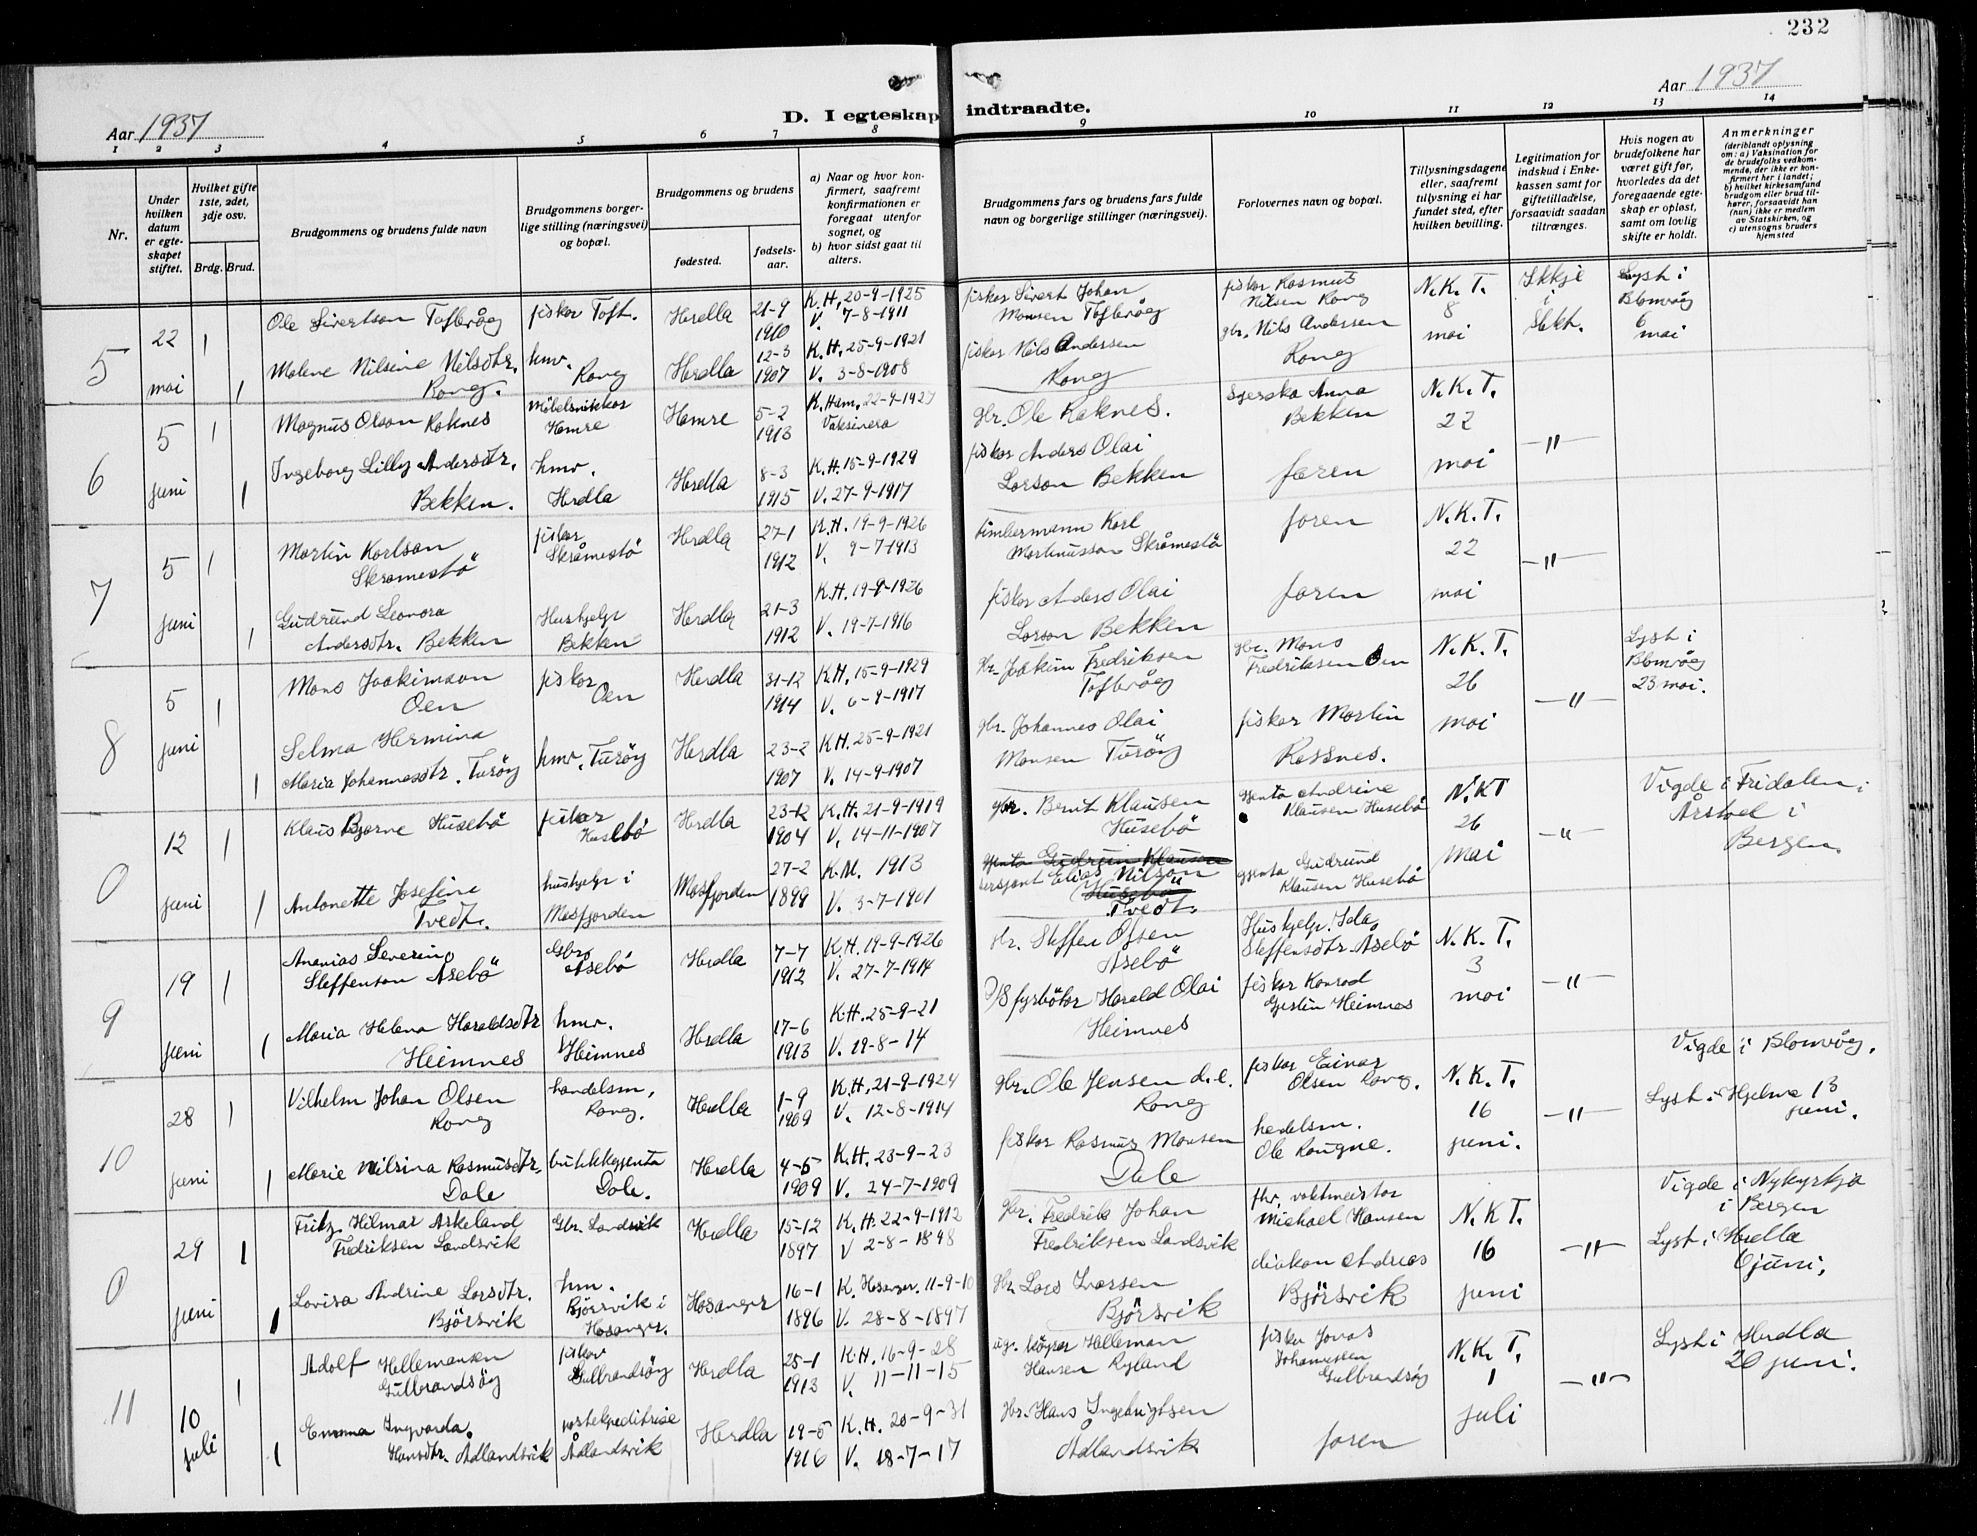 232
Aar 1937
D. I egteskap indtraadte.
Aar 1937
1 2 3 4 5 6 7 8 9 10 11 12 13 14
Nr.
Under hvilken datum er egteskapet stiftet.
Hvilket gifte 1ste, 2det, 3dje osv.
Brdg. Brud.
Brudgommens og brudens fulde navn
Brudgommens borgerlige stilling (næringsvei) og bopæl.
Brudgommens og brudens
fødested.
fødselsaar.
a) Naar og hvor konfirmert, saafremt konfirmationen er foregaat utenfor sognet, og
b) hvor sidst gaat til alters.
Brudgommens fars og brudens fars fulde navn og borgerlige stillinger (næringsvei).
Forlovernes navn og bopæl.
Tillysningsdagene eller, saafremt tillysning ei har fundet sted, efter hvilken bevilling.
Legitimation for indskud i Enkekassen samt for giftetilladelse, forsaavidt saadan tiltrænges.
Hvis nogen av brudefolkene har været gift før, hvorledes da det foregaaende egteskap er opløst, samt om lovlig skifte er holdt.
Anmerkninger
(deriblandt oplysning om: a) Vaksination for de brudefolks vedkommende, der ikke er konfirmert her i landet; b) hvilket kirkesamfund brudgom eller brud tilhører, forsaavidt han (hun) ikke er medlem av Statskirken, og c) utensogns bruders hjemsted
5 22 mai 1 Ole Sivertson Toftevåg fiskar Toft. Herdla 21-9 1910 K.H. 20-9-1925 V. 7-8-1911 fiskar Sivert Johan Monsen Toftevåg fiskar Rasmus Nilsen Rong N.K.T. 8 mai Skkje i Skkt. Lyst i Blomvåg 6 mai
1 Malene Nilsine Nilsdtr. Rong. hmv. Rong Herdla 12-3 1907 K.H. 25-9-1921 V. 3-8-1908 fiskar Nils Andersen Rong gbr. Nils Andersen Rong
6 5 juni 1 Magnus Olson Raknes Møbelsnikkar Hamre Hamre 5-2 1913 K. Ham. 22-9-1927 Vaksinera Gbr. Ole Raknes. Syerska Anna Bekken N.K.T. 22 mai -"-
1 Ingeborg Lilly Andersdtr. Bekken. hmv. Herdla Herdla 8-3 1915 K.H. 15-9-1929 V. 27-9-1917 fiskar Anders Olai Larson Bekken faren
7 5 juni 1 Martin Karlson Skråmestø fiskar Skråmestø Herdla 27-1 1912 K.H. 19-9-1926 V. 9-7-1913 timbermann Karl Martinusson Skråmestø faren N.K.T. 22 mai -"-
1 Gudrund Leonora Andersdtr. Bekken Hushjelp Bekken Herdla 21-3 1912 K.H. 19-9-1926 V. 19-7-1916 fiskar Anders Olai Larson Bekken faren
8 5 juni 1 Mons Joakimson Oen fiskar Oen Herdla 31-12 1914 K.H. 15-9-1929 V. 6-9-1917 Gbr. Joakim Fredriksen Toftevåg gbr. Mons Fredriksen Oen N.K.T. 26 mai -"- Lyst i Blomvåg 23 mai.
1 Selma Hermina Maria Johannesdtr. Turöy hmv. Turöy Herdla 23-2 1907 K.H. 25-9-1921 V. 14-9-1907 gbr. Johannes Olai Monsen Turöy fiskar Martin Rossnes.
0 12 juni 1 Klaus Bjarne Husebö fiskar Husebö Herdla 23-12 1904 K.H. 21-9-1919 V. 14-11-1907 gbr. Bernt Klausen Husebö gjenta Andrine Klausen Husebö N.KT 26 Mai -"- Vigde i Fridalen i Årstad i Bergen.
1 Antonette Josefine Tvedt. hushjelp i Masfjorden Masfjorden 27-2 1899 K.M. 1913 V. 3-7-1901 gjenta Gudrun Klausen Husebö sersjant Elias Nilson Tvedt. gjenta Gudrund Klausen Husebö
9 19 juni 1 Ananias Severin Steffenson Åsebö Gbr. Åsebö Herdla 7-7 1912 K.H. 19-9-1926 V. 27-7-1914 Gbr. Steffen Olsen Åsebö Hushjelp. Ida Steffensdtr. Åsebö N.K.T. 3 mai -"-
1 Maria Helena Haraldsdtr Heimnes hmv. Heimnes Herdla 17-6 1913 K.H. 25-9-21 V. 19-8-14 D/S fyrbötar Harald Olai Heimnes fiskar Konrad Gjertin Heimnes
10 28 juni 1 Vilhelm Johan Olsen Rong handelsm. Rong. Herdla 1-9 1909 K.H. 21-9-1924 V. 12-8-1914 Gbr. Ole Jensen d.e. Rong fiskar Einar Olsen Rong. N.K.T. 16 juni. -"- Vigde i Blomvåg. Lyst i Hjelma 13 juni.
1 Marie Nilsina Rasmusdtr. Dale butikkgjenta Dale. Herdla 4-5 1909 K.H. 23-9-23 V. 24-7-1909 fiskar Rasmus Monsen Dale hadelsm. Ole Rougne.
0 29 juni 1 Fritz Hilmar Askeland Fredriksen Landsvik Gbr. Landsvik Herdla 15-12 1897 K.H. 22-9-1912 V 2-8-1898 Gbr. Fredrik Johan Fredriksen Landsvik fhv. vaktmeistar Michael Hansen N.K T. 16 juni -"- Vigde i Nykyrkja i Bergen Lyst i Herdla 6 juni.
1 Lovisa Andrine Larsdtr. Bjørsvik hm. Bjørsvik i Hosanger. Hosanger 16-1 1896 K. Hosanger. 11-9-10 V. 28-8-1897 Gbr. Lars Larssen Bjørsvik diakon Andreas Bjørsvik
11 10 juli 1 Adolf Hellemansen Gulbrandsöy fiskar Gulbrandsöy Herdla 25-1 1913 K.H. 16-9-28 V. 11-11-15 Helleman Hansen Ryland fiskar Jonas Johannesen Gulbrandsöy N.K.T. 1 juli -"- Lyst i Herdla 20 juni.
1 Emma Ingvarda Hansdtr. Ådlandsvik postekspeditrise Ådlandsvik Herdla 19-5 1916 K.H. 20-9-31 V. 18-7-17 Gbr. Hans Ingebrigtsen Ådlandsvik faren